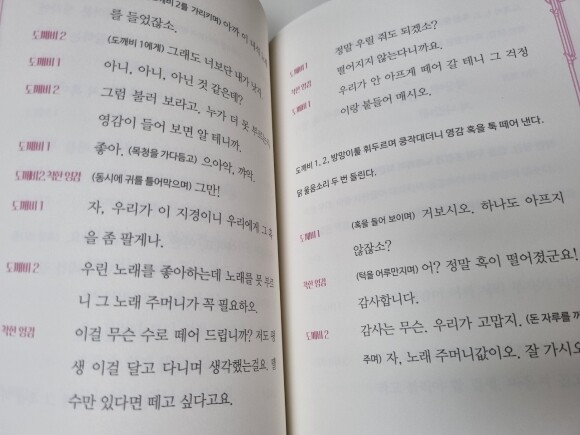 2를 가리키며) 아까 이
를 들었잖소.
도깨비 2 (도깨비 1에게) 그래도 너보단 내가 낫지.
도깨비 1 아니, 아니, 아닌 것 같은데?
도깨비 2 그럼 불러 보라고. 누가 더 못
영감이 들어 보면 알 테니까.
도깨비 1 좋아. (목청을 가다듬고) 으아악, 까악.
도깨비2 착한 영감 (동시에 귀를 틀어막으며) 그만!
도깨비 1 자, 우리가 이 지경이니 우리에게 그
을 좀 팔게나.
도깨비 2 우린 노래를 좋아하는데 노래를 못
니 그 노래 주머니가 꼭 필요하오.
착한 영감 이걸 무슨 수로 떼어 드립니까? 저도
생 이걸 달고 다니며 생각했는걸요.
수만 있다면 떼고 싶다고요.
정말 우릴 줘도 되겠소?
도깨비 1 떨어지지 않는다니까요.
착한 영감 우리가 안 아프게 떼어 갈 테니 그 걱정
도깨비 1 이랑 붙들어 매시오.
도깨비 1, 2, 방망이를 휘두르며 쿵작대더니 영감 혹을 툭 떼어 낸다.
닭 울음소리 두 번 들린다.
도깨비 1 (혹을 들어 보이며) 거보시오. 하나도 아프지
않잖소?
착한 영감 (턱을 어루만지며) 어? 정말 혹이 떨어졌군요!
감사합니다.
도깨비 2 감사는 무슨. 우리가 고맙지. (돈 자루를
주며) 자, 노래 주머니값이오. 잘 가시오